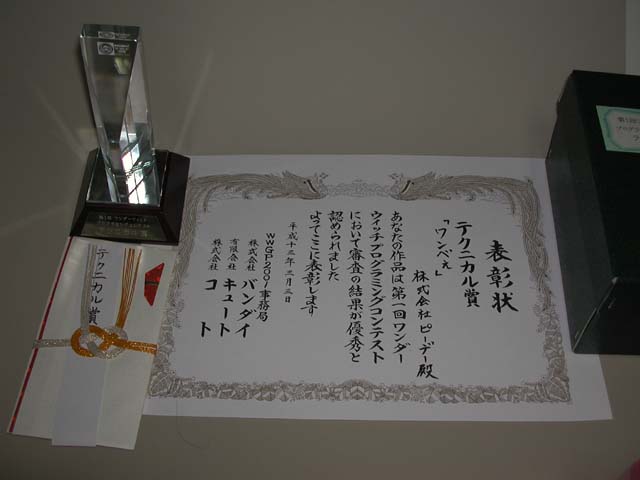 表彰状
テクニカル賞
「ワンべぇ」
株式会社ピーデー殿
あなたの作品は第一回ワンダー
ウィッチプログラミングコンテスト
において審査の結果が優秀と
認められました
よってここに表彰します
平成十三年三月三日
WWGP2001事務局
株式会社 バンダイ
有限会社 キュート
株式会社 コト
テクニカル賞